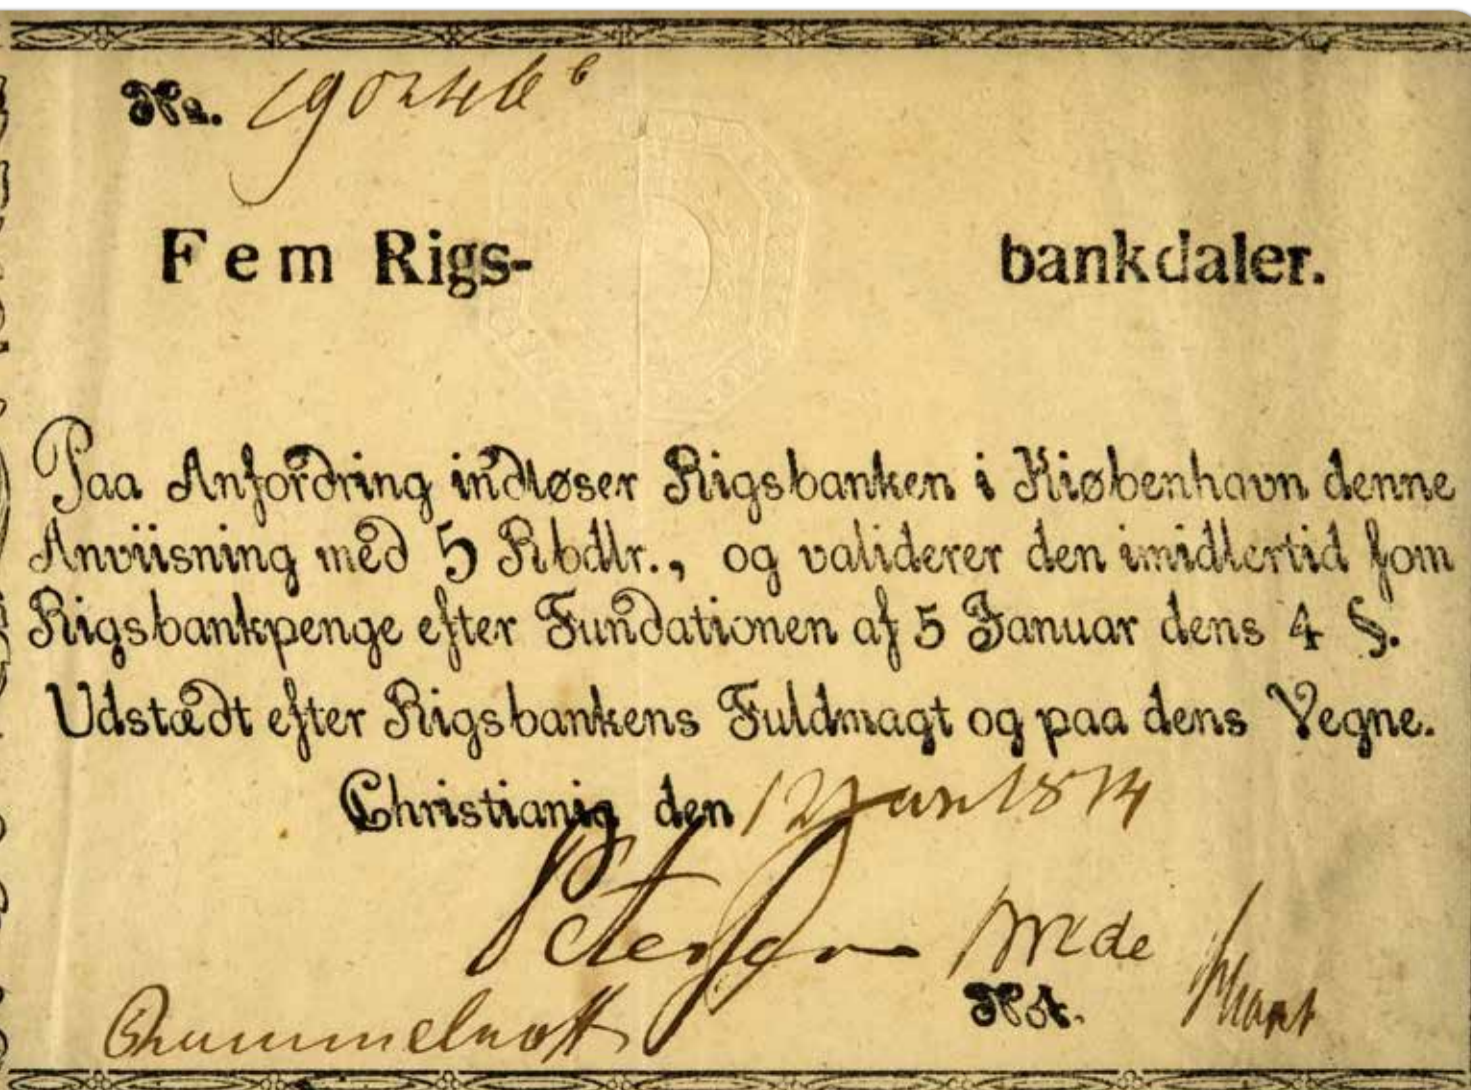 No. 190246 6
Fem Rigs- bankdaler.
Paa Anfordring indløser Rigsbanken i Kiøbenhavn denne
Anviisning med 5 Rbdlr., og validerer den imidlertid som
Rigsbankpenge efter Fundationen af 5 Januar dens 4 §.
Udstædt efter Rigsbankens Fuldmagt og paa dens Vegne.
Christiania den 12 Jan 1814